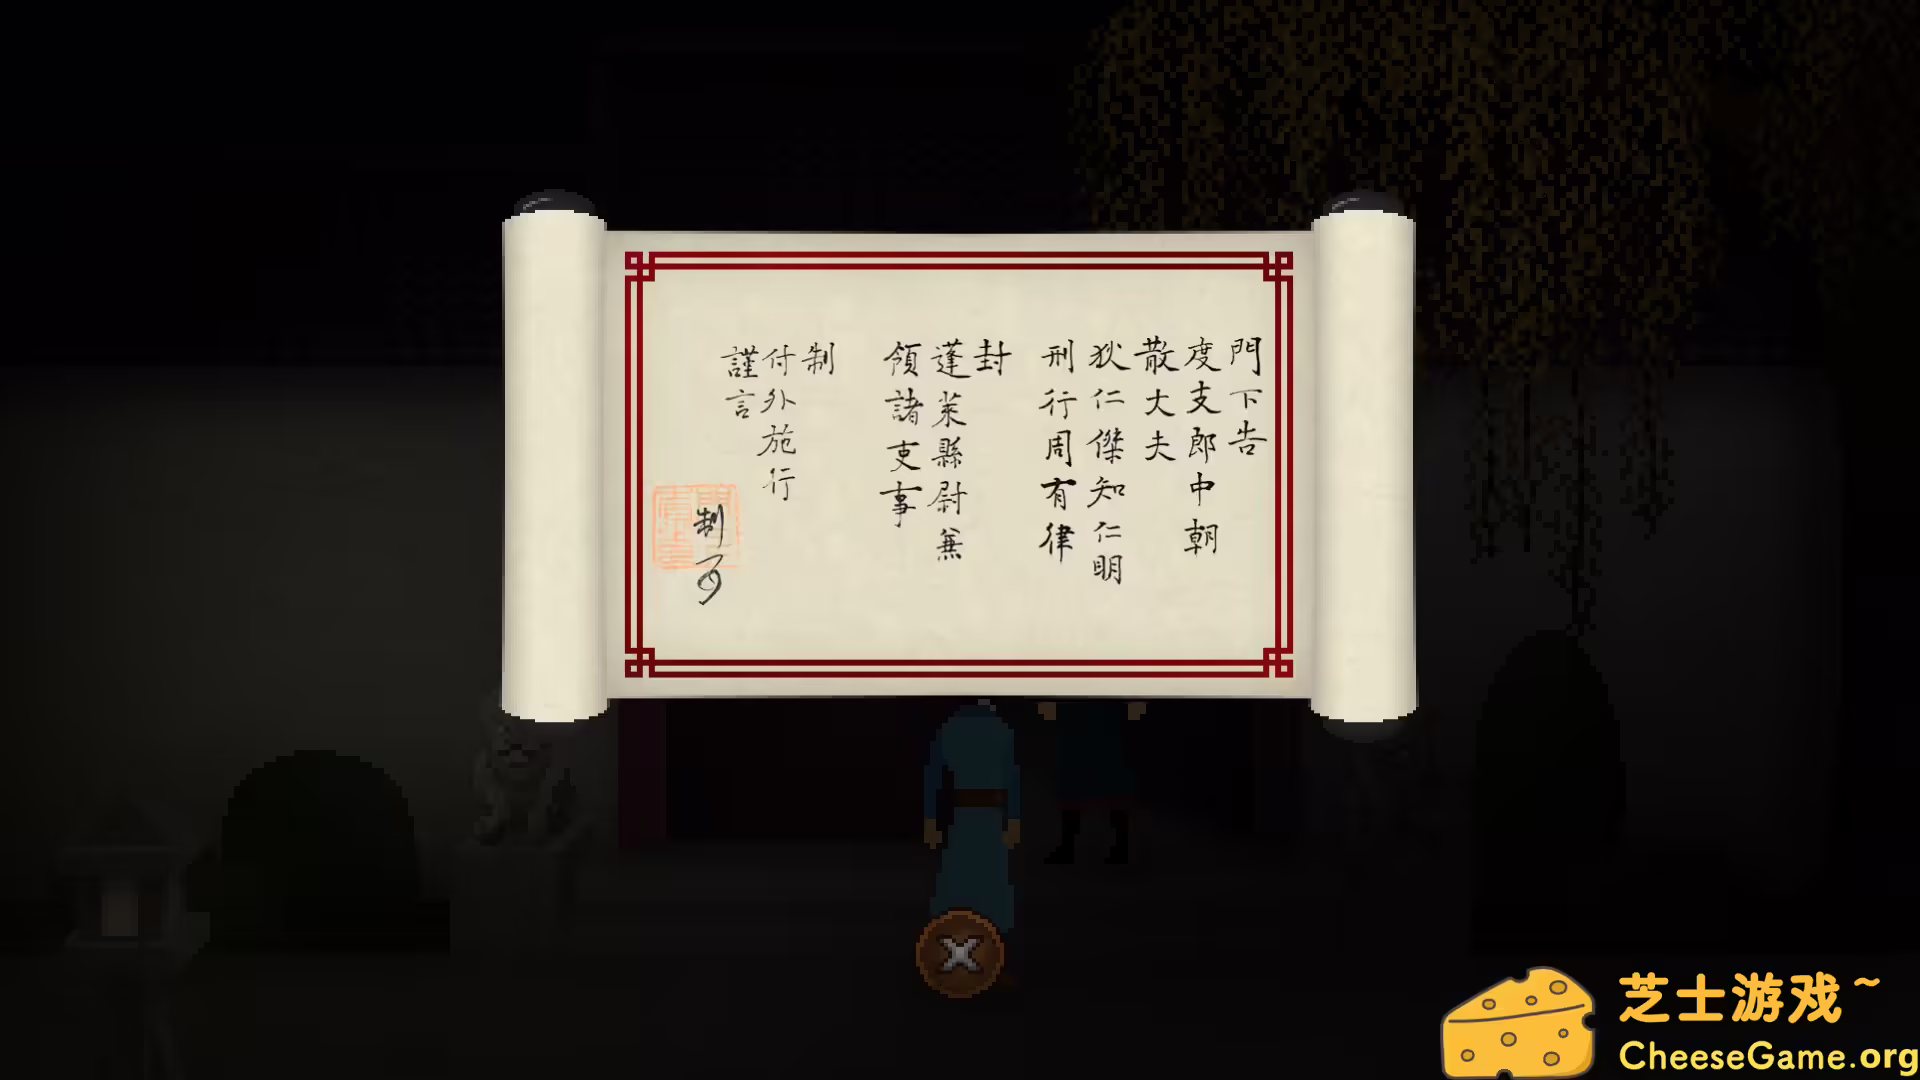 門下告
度支郎中朝
散大夫
狄仁傑知仁明
刑行周有律
封
蓬萊縣尉兼
領諸吏事
制
付外施行
謹言
制可
芝士游戏~
CheeseGame.org